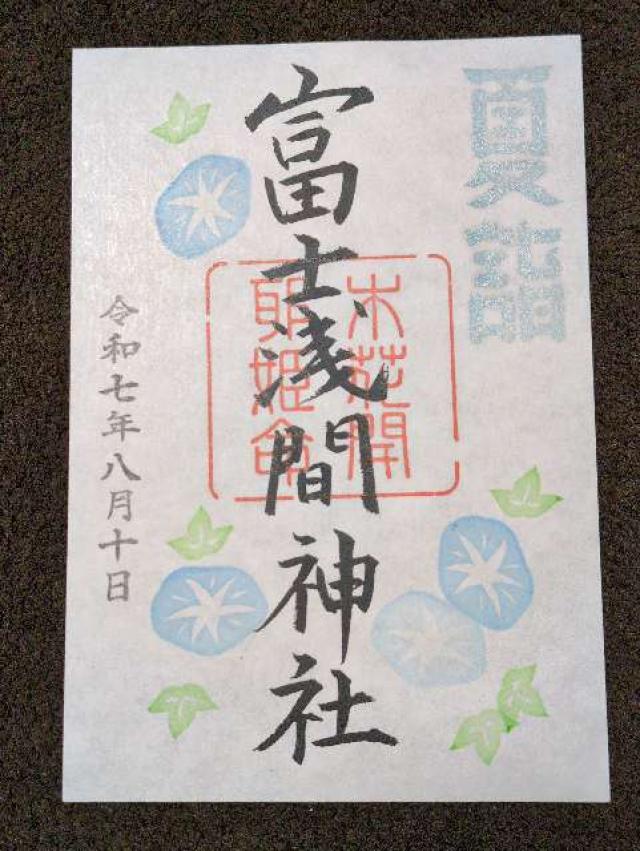 夏詣
富士浅間神社
木花開
耶姫命
令和七年八月十日